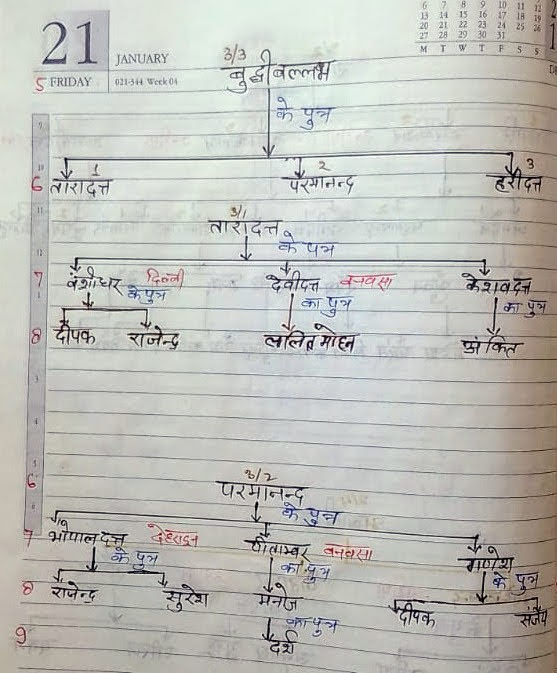 21
JANUARY
5 FRIDAY 021-344 Week 04
6 7 8 9 10 11 12
13 14 15 16 17 18 19
20 21 22 23 24 25 26
27 28 29 30 31
M T W T F S S
3/3
बुद्धीबल्लभ
के पुत्र
1 2 3
6 तारादत्त परमानन्द हरीदत्त
3/1
तारादत्त
के पुत्र
7 बंशीधर दिल्ली देवीदत्त बनवसा केशवदत्त
के पुत्र का पुत्र का पुत्र
8 दीपक राजेन्द्र ललित मोहन अंकित
3/2
6 परमानन्द
के पुत्र
7 गोपालदत्त देहरादून पीताम्बर बनवसा गणेश
के पुत्र का पुत्र के पुत्र
8 राजेन्द्र सुरेश मनोज दीपक संजय
का पुत्र
9 दर्श